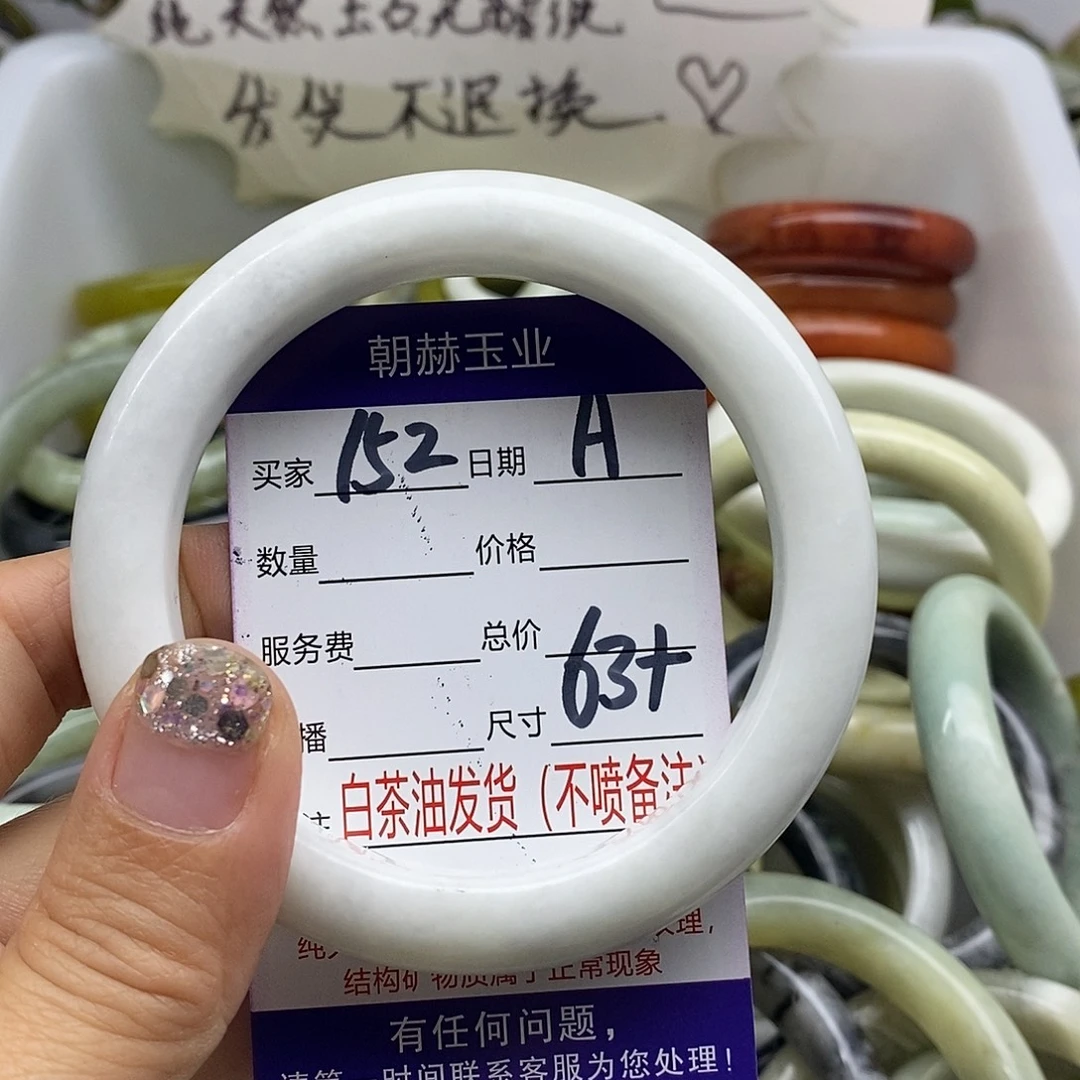 纯天然玉石无醒很
发货不退换
朝赫玉业
买家 152 日期 A
数量 价格
服务费 总价
播 尺寸 63+
注 白茶油发货(不喷备注)
纯 理,
结构矿物质属于正常现象
有任何问题,
请第一时间联系客服为您处理!